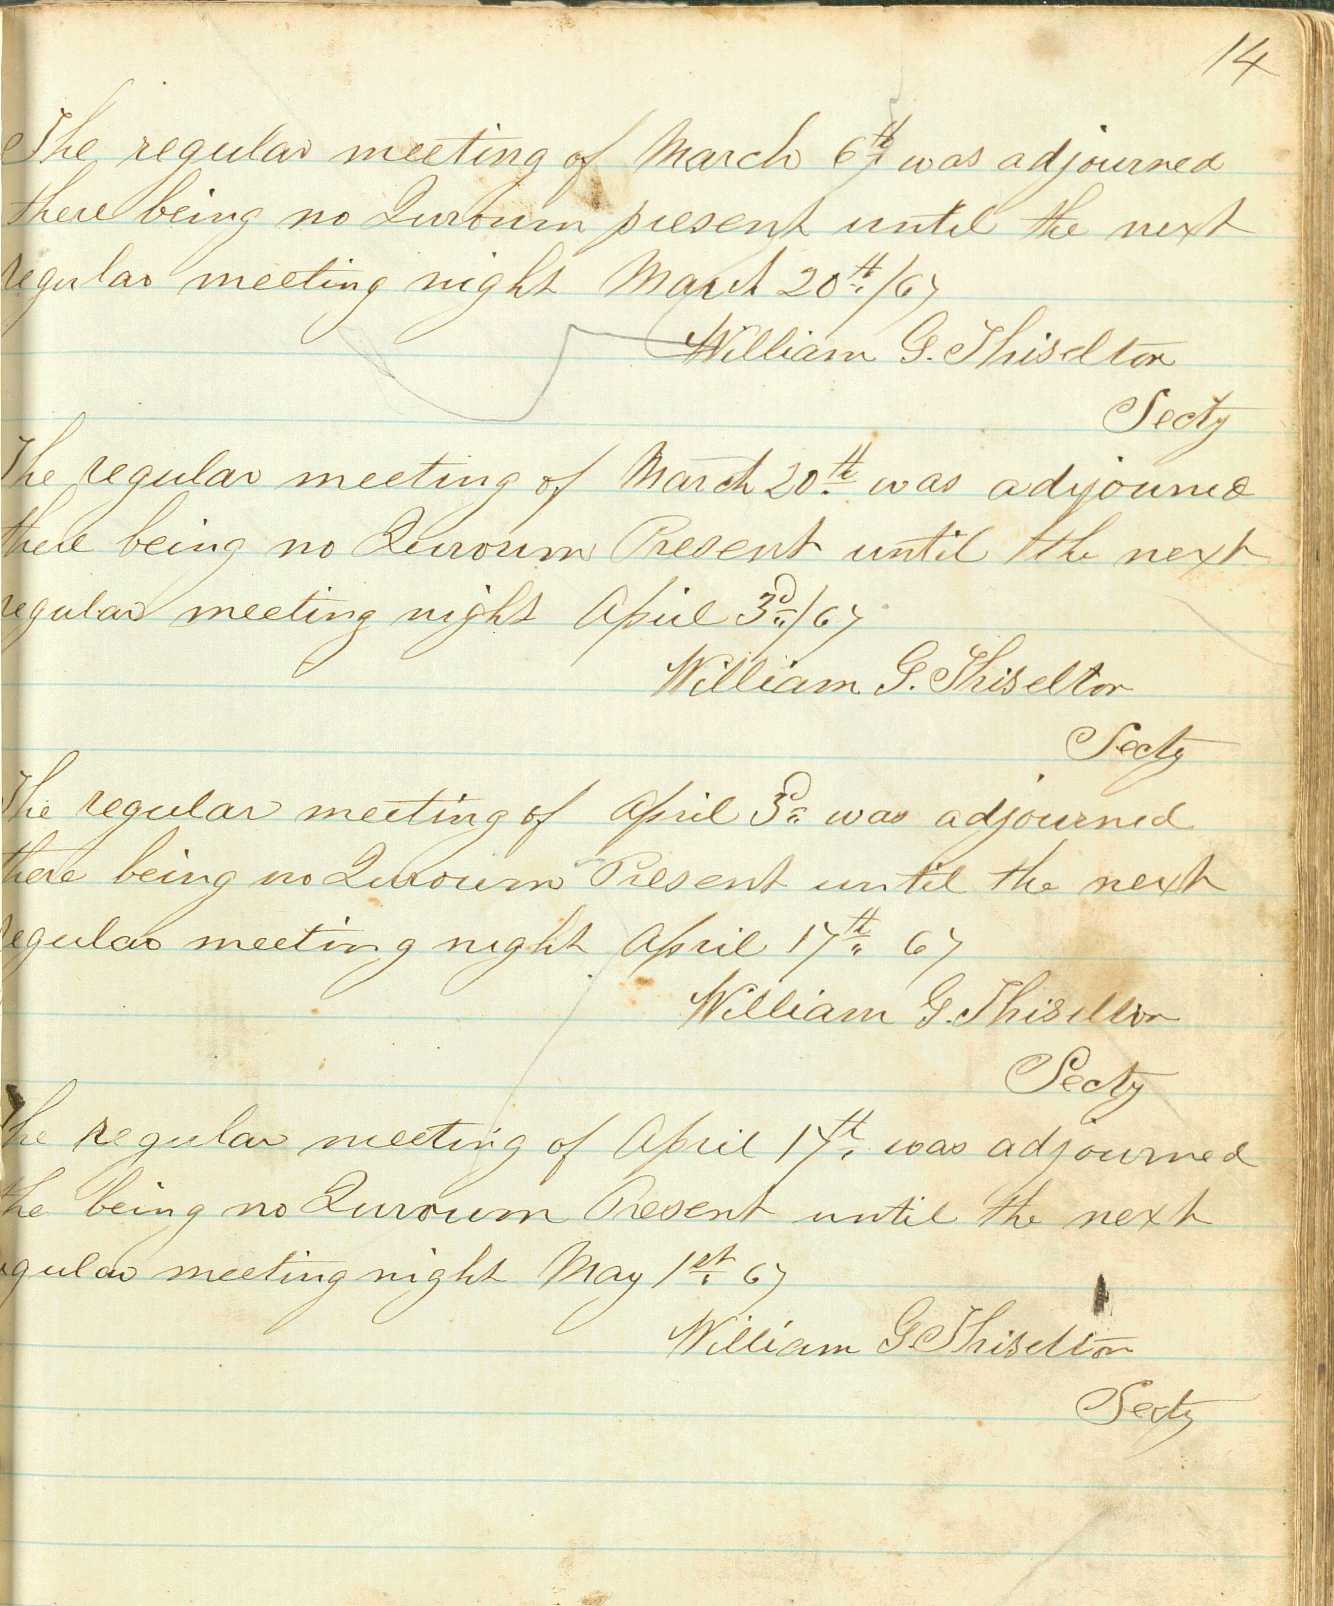 14
The regular meeting of March 6th was adjourned
there being no Quroum present until the next
regular meeting night March 20th /67
William G. Thiselton
Secty
The regular meeting of March 20th was adjourned
there being no Quroum Present until the next
regular meeting night April 3d /67
William G. Thiselton
Secty
The regular meeting of April 3d was adjourned
there being no Quroum Present until the next
regular meeting night April 17th 67
William G. Thiselton
Secty
The regular meeting of April 17th was adjourned
the being no Quroum Present until the next
regular meeting night May 1st 67
William G. Thiselton
Secty